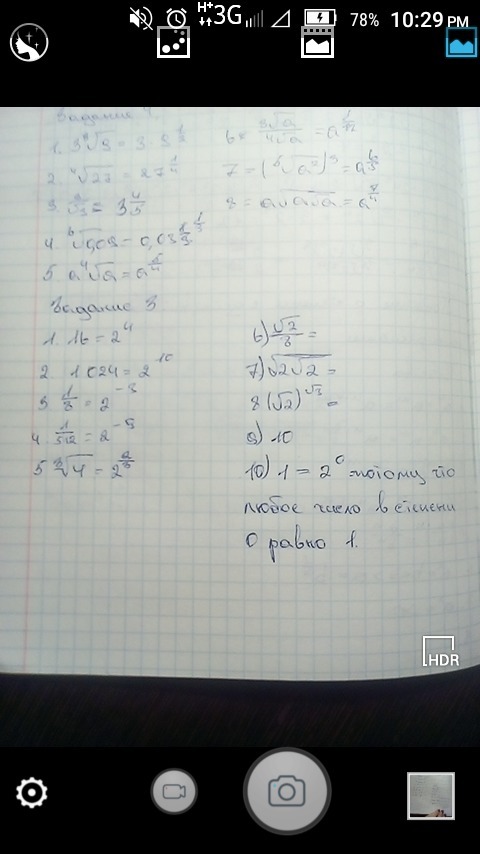 H+ 3G 78% 10:29 PM
Задание 4.
2. ⁴√27 = 27^(1/4)
4. ⁶√0,03 = 0,03
5. a ⁴√a = a^(5/4)
6 = ³√a / ⁴√a = a^(1/12)
8 = a√a√a = a^(7/4)
Задание 3
1. 16 = 2⁴
2. 1024 = 2¹⁰
3 1/8 = 2⁻³
4. 1/512 = 2⁻⁹
5 ³√4 = 2^(2/3)
6) √2/8 =
7) √2√2 =
8 (√2)^√3 =
9) 10
10) 1 = 2⁰ потому что
любое число в степени
0 равно 1.
HDR